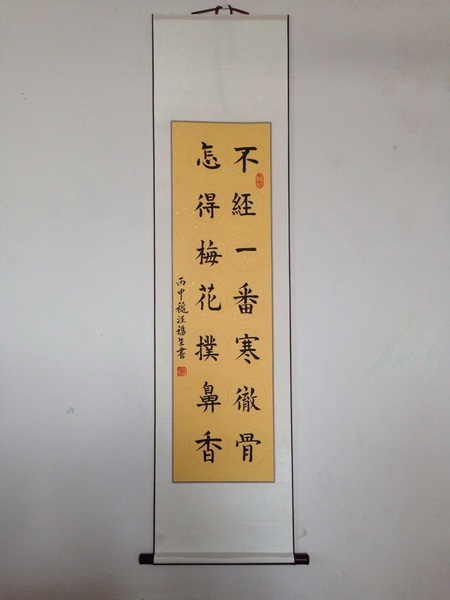 不經一番寒徹骨
怎得梅花撲鼻香
丙申龝汪福生書